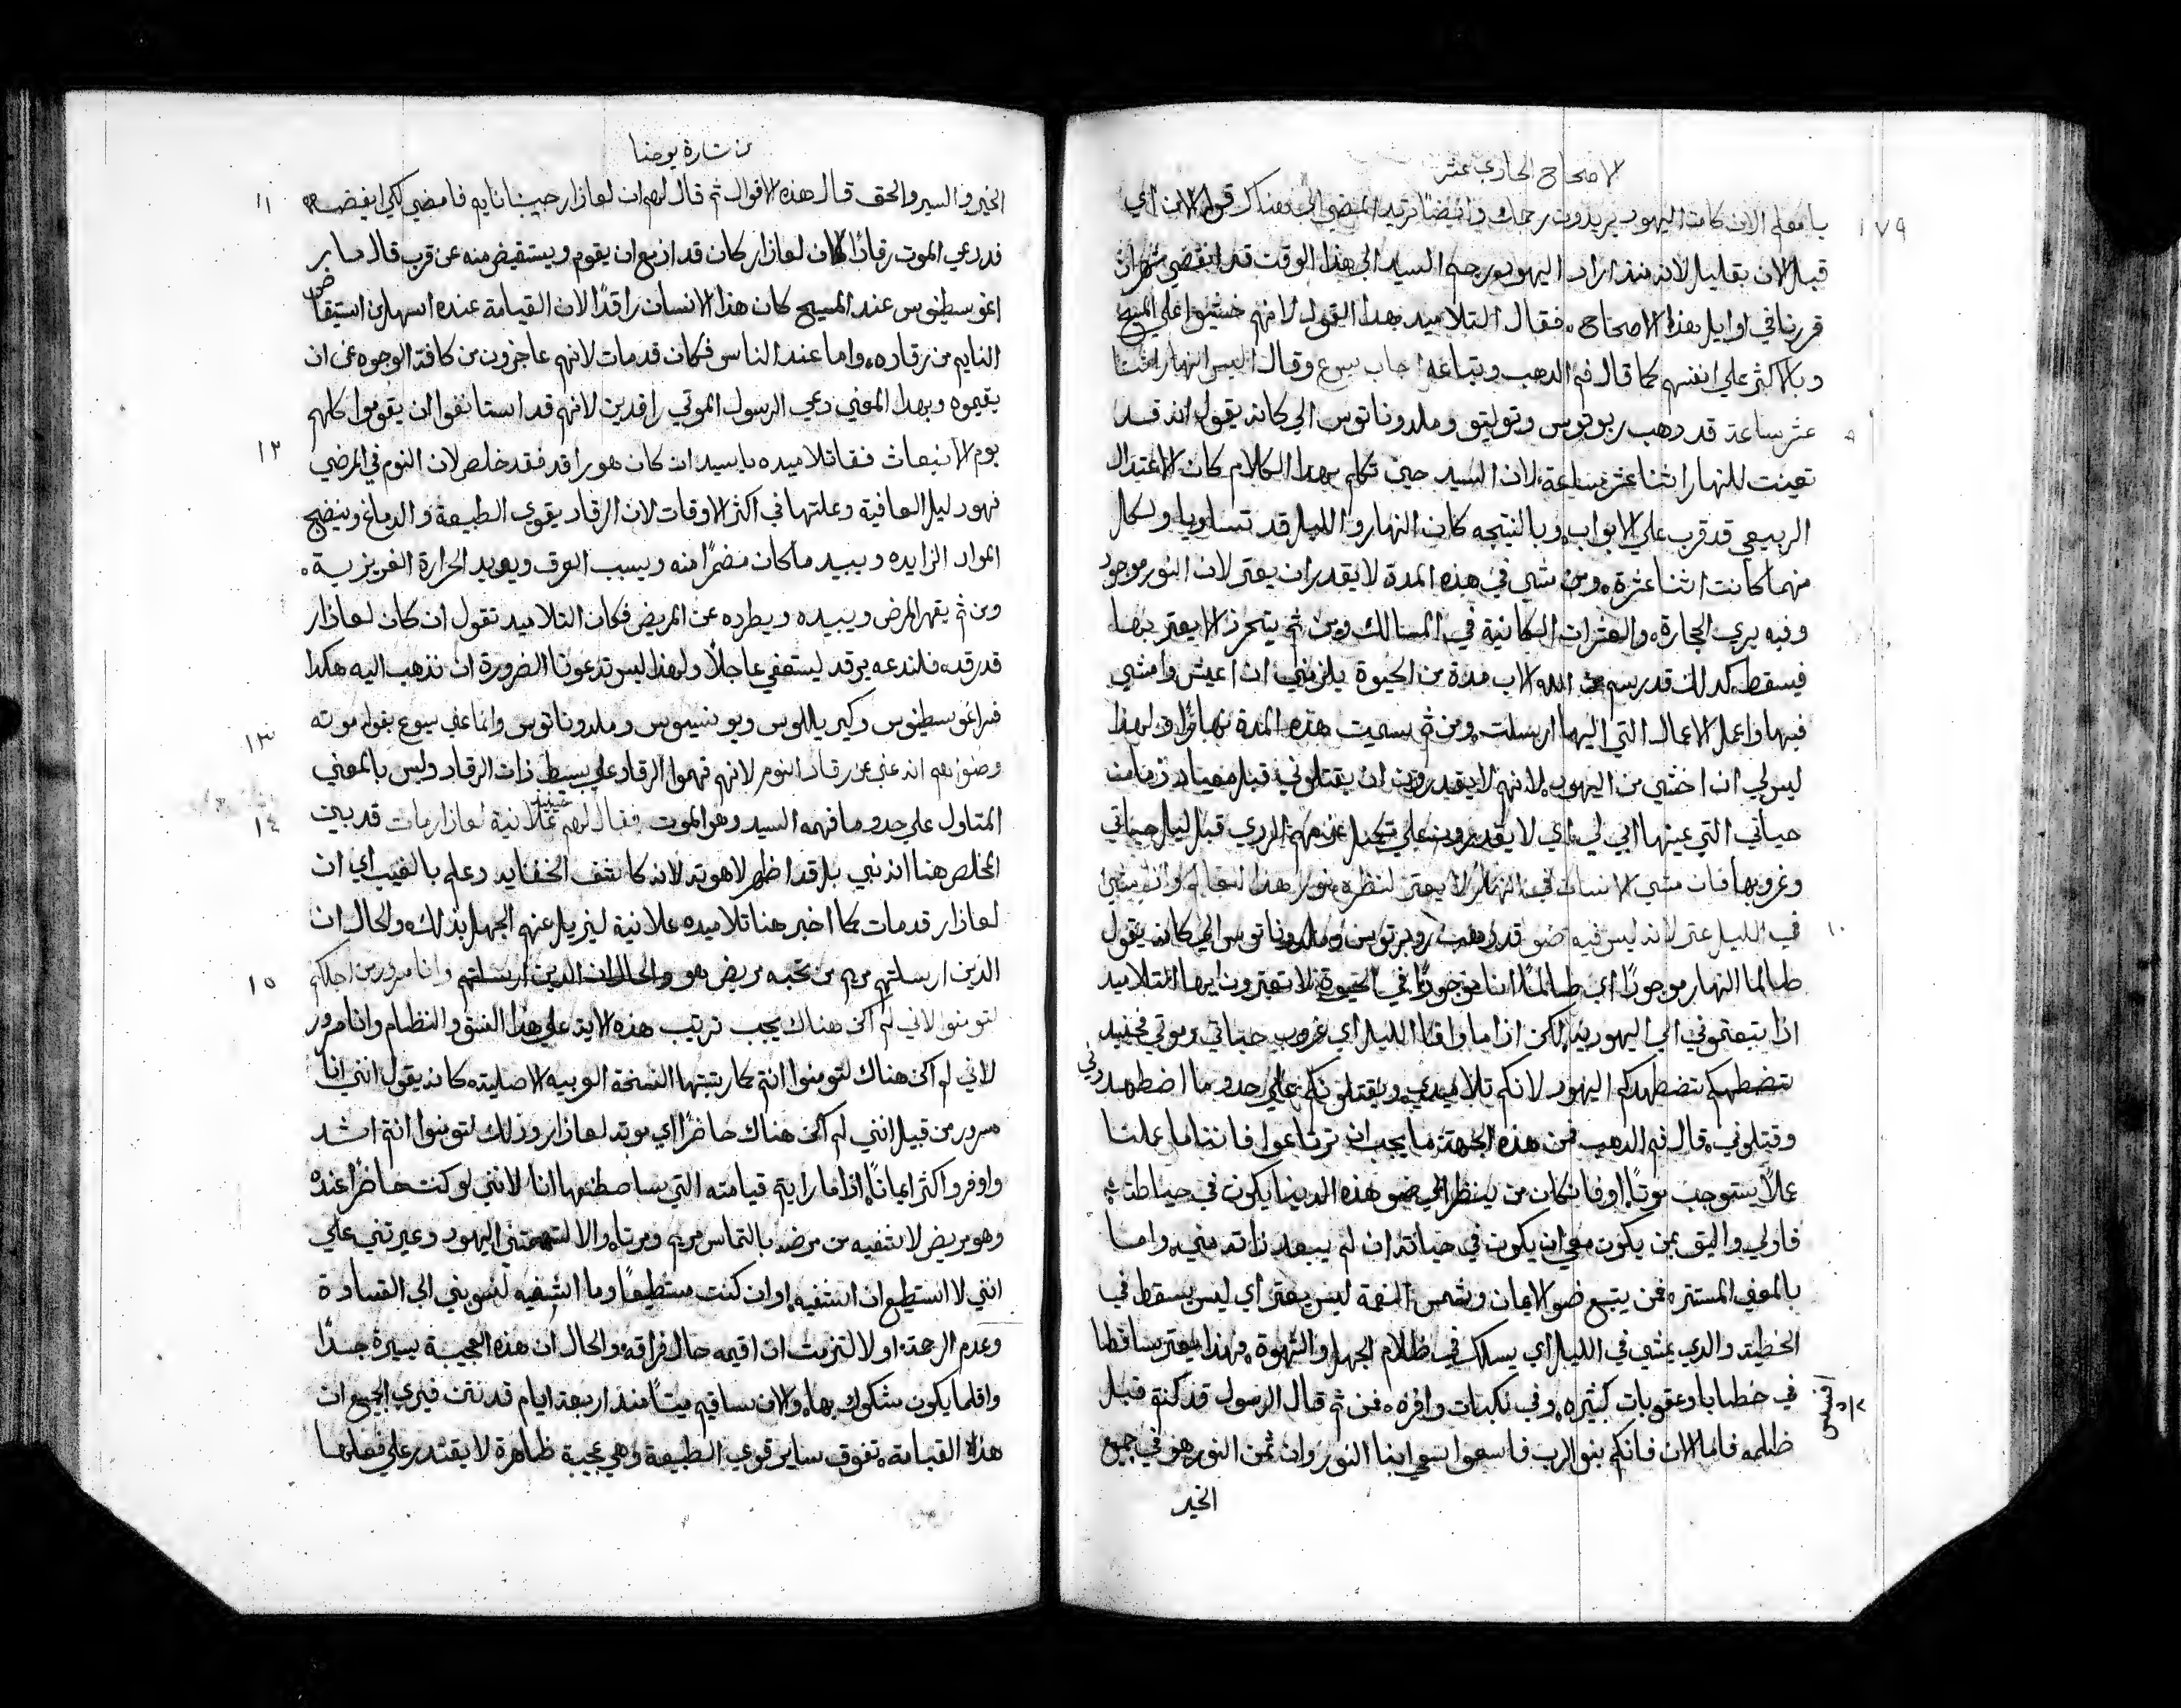 الاصحاح الحادي عشر
١٧٩
يا معلم الان كانت اليهود يريدون رجمك وايضًا تريد تمضي الي هناك قوله الان اي
قبل الان بقليل لانه منذ اراد اليهود رجم السيد الي هذا الوقت قد انقضي شهران
قررنا في اوايل هذا الاصحاح. فقال التلاميد هدا القول لانهم خشيوا علي المسيح
وبالاكثر علي انفسهم كما قال فم الدهب وتباعه اجاب يسوع وقال اليس النهار اثنتا
٩
عشر ساعة قد دهب ربوتوس وتوليتو وملدوناتوس الي كانه يقول انه قد
تعينت للنهار اثنا عشر ساعة لان السيد حين تكلم بهدا الكلام كان الاعتدال
الربيعي قد قرب علي الابواب وبالنتيجه كان النهار والليل قد تساويا ولكل
منهما كانت اثنا عشرة. ومن مشي في هذه المدة لا يقدر ان يعتر لان النور موجود
وفيه يري الحجارة والعثرات الكاينة في المسالك ومن ثم يتحرز الا يعتر بها
فيسقط كدلك قد رسم الله الاب مدة من الحيوة يلزمني ان اعيش وامشي
فيها واعمل الاعمال التي اليها ارسلت ومن ثم سميت هذه المدة نهارًا ولهذا
ليس لي ان اخشي من اليهود لانهم لا يقدرون ان يقتلوني قبل ميعاد زمان من
حياتي التي عينها ابي لي اي لا يقدرون علي تكميل عزمهم الردي قبل ليل حياتي
وغروبها فان مشي الانسان في النهار لا يعتر لنظره نور هذا العالم وان مشي
١٠
في الليل عتر لانه ليس فيه ضو قد دهب روبرتوس وملدوناتوس الي كانه يقول
طالما النهار موجودًا اي طالما انا موجودًا في الحيوة لا تعترون ايها التلاميد
اذا تبعتموني الي اليهودية لكن اذا ما وافا الليل اي غروب حياتي وموتي فحينيد
تضطهدكم اليهود لانكم تلاميدي ويقتلونكم علي حدو ما اضطهدوني
وقتلوني. قال فم الدهب فمن هذه الجهة ما يجب ان ترتاعوا فاننا ما عملنا
عملًا يستوجب موتًا او فان كان من ينظر الي ضو هذه الدينا يكون في حياطته
فاولي واليق بمن يكون معي ان يكون في حياته ان لم يبعد ذاته مني. واما
بالمعني المستتر فمن يتبع ضو الايمان وشمس النعمة ليس يعتر اي ليس يسقط في
الخطية والدي يمشي في الليل اي يسلك في ظلام الجهل والشهوة. فهذا يعتر ساقطا
في خطايا وعقوبات كثيره وفي نكبات وافره. فمن ثم قال الرسول قد كنتم قبل
افسس
ظلمه فاما الان فانكم بنو الرب فاسعوا سعي ابنا النور وان ثمن النور هو في جميع
الخير
من بشارة يوحنا
الخير والسير والحق قال هذه الاقوال ثم قال لهم ان لعازار حبيبنا نايم فامضي لكي ايقضه
١١
فدعي الموت رقادًا لان لعازار كان قد ازمع ان يقوم ويستقيض منه عن قرب قال مار
اغوسطينوس عند المسيح كان هذا الانسان راقدًا لان القيامة عنده اسهل من استيقاض
النايم من رقاده. واما عند الناس فكان قد مات لانهم عاجزون من كافة الوجوه عن ان
يقيموه وبهدا المعني دعي الرسول الموتي راقدين لانهم قد استانفوا ان يقوموا كلهم
يوم الانبعاث فقا تلاميده يا سيد ان كان هو راقد فقد خلص لان النوم في المرضي
١٢
فهو دليل العافية وعلتها في اكثر الاوقات لان الرقاد يقوي الطبيعة والدماغ وينضج
المواد الزايده ويبيد ما كان مضرًا منه ويسبب العرق ويويد الحرارة الغريزية.
ومن ثم يقهر المرض ويبيده ويطرده عن المريض فكان التلاميد تقول ان كان لعازار
قد رقد فلندعه يرقد ليستشفي عاجلًا ولهذا ليس تدعونا الضرورة ان نذهب اليه هكدا
فسر اغوسطينوس وكيريللوس وملدوناتوس وانما عني يسوع بقوله موته
١٣
وضنوا هم انه عني عن رقاد النوم لانهم فهموا الرقاد علي بسيط ذات الرقاد وليس بالمعني
المتاول علي حدو ما فهمه السيد وهو الموت فقال لهم حينيد علانية لعازار مات قد بين
١٤
المخلص هنا انه نبي بل قد اظهر لاهوته لانه كاشف الخفايد وعلم بالغيب اي ان
لعازار قد مات كما اخبر هنا تلاميده علانية ليزيل عنهم الجهل بذلك والحال ان
الدين ارسلتهم مريم من تحبه مريض هو والحال ان الدين ارسلتهم وانا مسرور من اجلكم
١٥
لتومنوا لاني لم اكن هناك يجب ترتيب هذه الايه علي هذا النسق والنظام وانا مسرور
لاني لم اكن هناك لتومنوا انتم كما رتبتها النسخة العربيه الاصلية كانه يقول انني انا
مسرور من قبل انني لم اكن هناك حاضرًا اي موته لعازار وذلك لتومنوا انتم اشد
واوفر واكثر ايمانًا اذا ما رايتم قيامته التي ساصطنعها انا لانني لو كنت حاضرًا عنده
وهو مريض لاشفيه من مرضه بالتماس مريم ومرتا والا لتهمتني اليهود وعيرتني علي
انني لا استطيع ان اشفيه او ان كنت مستطيعًا وما اشفيه لنسبوني الي القساوة
وعدم الرحمة او لا لتزمت ان اقيمه حال فراقه والحال ان هذه العجيبة يسيرة جدًا
واقلما يكون مشكوك بها. والان ساقيم ميتًا منذ اربعة ايام قد نتن فيري الجميع ان
هذه القيامة تفوق ساير قوي الطبيعة وهي عجيبة ظاهرة لا يقتدر علي فعلها